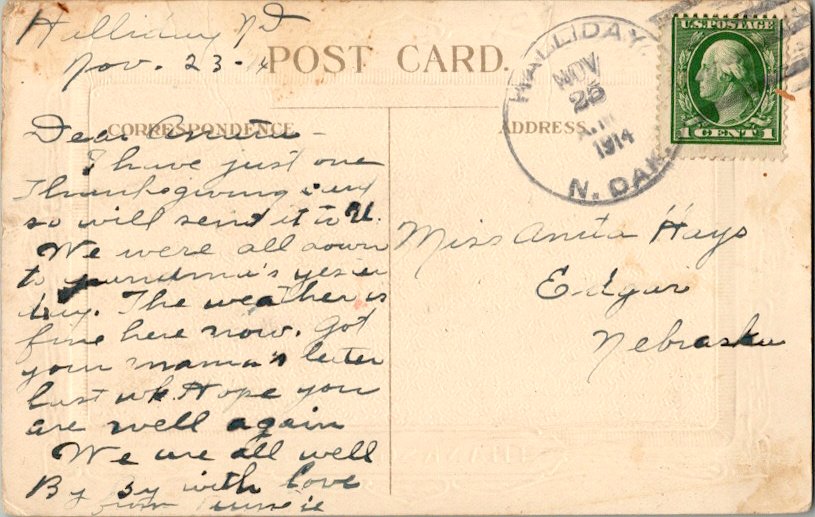 Halliday ND
Nov. 23-14
POST CARD.
HALLIDAY
NOV
25
A.M
1914
N. DAK.
U.S. POSTAGE
1 CENT 1
CORRESPONDENCE
ADDRESS
Dear Anita -
I have just one
Thanksgiving card
so will send it to U.
We were all down
to grandma's yester
day. The weather is
fine here now. Got
your mama's letter
last wk. Hope you
are well again
We are all well
By by with love
from
Miss Anita Hays
Edgar
Nebraska